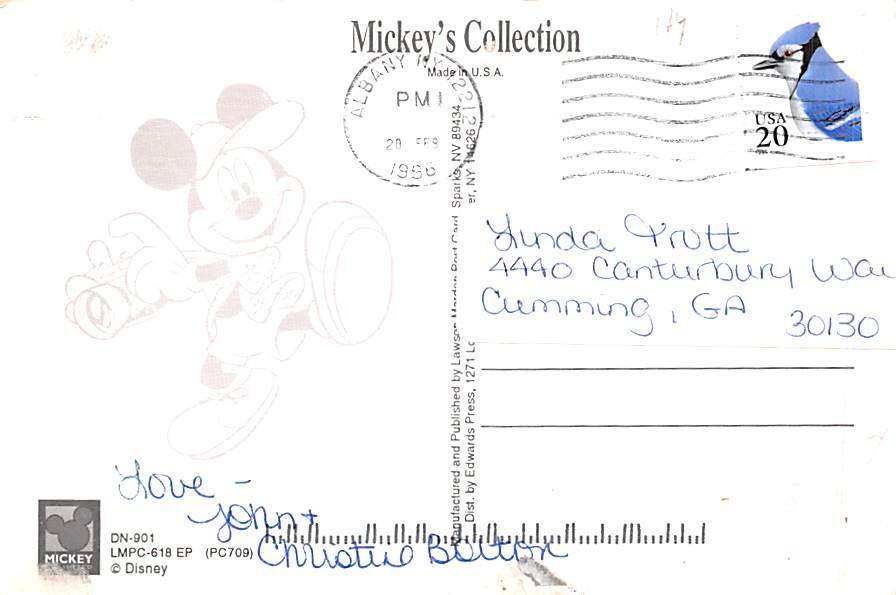 Mickey's Collection
Made in U.S.A.
ALBANY NY 122 12
PM
20 FEB
1996
USA
20
Linda Trott
4440 Canturbury Wa
Cumming, GA 30130
Manufactured and Published by Sparks, NV 89434
Dist. by Edwards Press, 1271 er, NY 14626
Love -
John +
Christie Bolton
MICKEY
DN-901
LMPC-618 EP (PC709)
© Disney